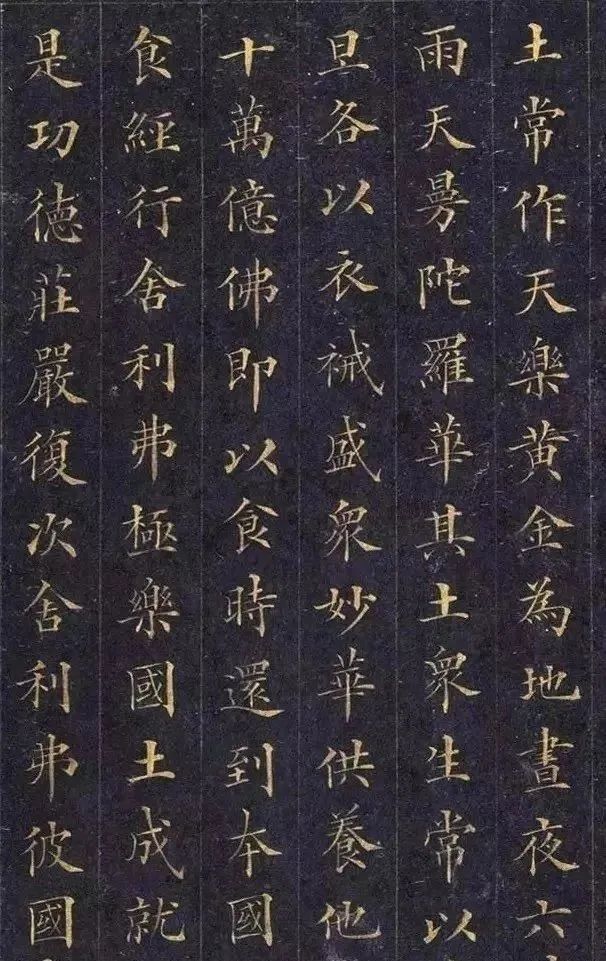 土常作天樂黄金為地晝夜六
雨天曼陀羅華其土衆生常以
旦各以衣祴盛衆妙華供養他
十萬億佛即以食時還到本國
食經行舍利弗極樂國土成就
是功徳莊嚴復次舍利弗彼國